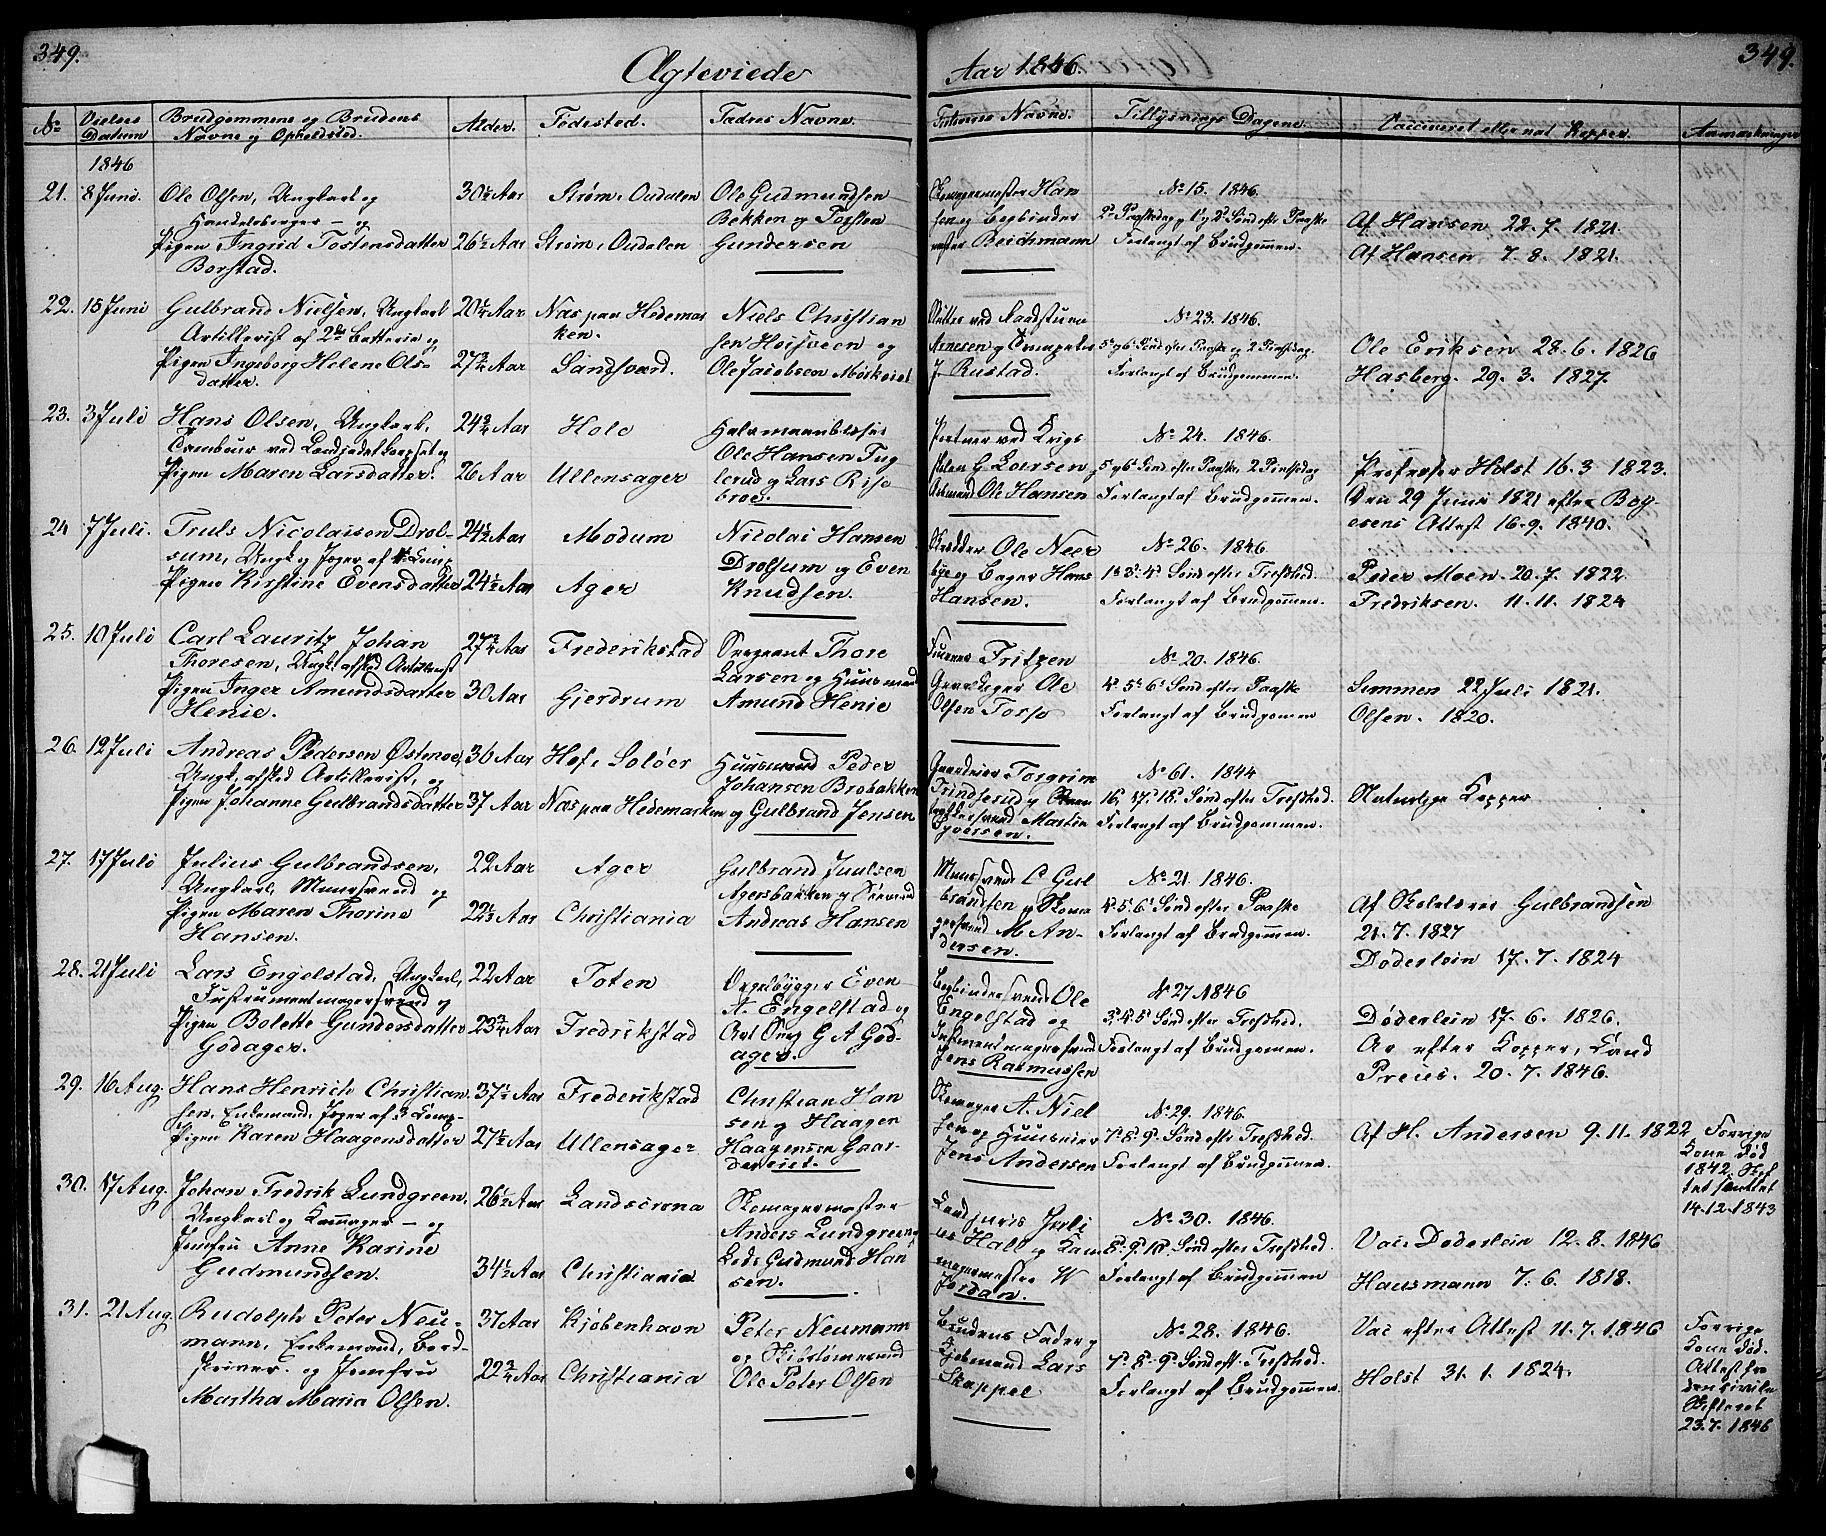 349.
Ægteviede
Aar 1846.
349.
No
Vielses Datum
Brudgommens og Brudens Navne og Opholdsted.
Alder.
Fødested.
Fadres Navne.
Forlovernes Navne.
Tillysnings Dagene.
Vaccineret eller nat. Kopper.
Anmærkninger
1846
21. 8 Juni. Ole Olsen, Ungkarl og 30½ Aar Strøm i Oudalen Ole Gudmundsen
Handelsborger – og Bekken og Tosten
Pigen Ingrid Tostensdatter 26½ Aar Strøm i Oudalen Gundersen
Borstad.
Skomagermester Han
sen og Bogbinder
mester Beichmann
No 15. 1846.
2d Paaskedag og 1 og 2 Sønd efter Paaske
Forlangt af Brudgommen.
Af Hansen 22. 7. 1821.
Af Hansen 7. 8. 1821.
22. 15 Juni Gulbrand Nielsen, Ungkarl 20¼ Aar Næs paa Hedemar Niels Christian
Artillerist af 2det Batterie og ken. sen Hoisveen og
Pigen Ingeborg Helene Ols- 27¾ Aar Sandsværd. Ole Jacobsen Mørkeiet
datter.
J. Rustad.
No 23. 1846.
5 og 6 Sønd efter Paaske og 2 Pintsedag
Forlangt af Brudgommen.
Ole Eriksen 28. 6. 1826
Hasberg. 29. 3. 1827.
23. 3 Juli Hans Olsen, Ungkarl, 24¾ Aar Hole
Tambour ved Landjodetkorpset og Ole Hansen Fug
Pigen Maren Larsdatter. 26 Aar Ullensager lerud og Lars Rise
broe.
Portner ved Krigs
skolen G Larsen
Ole Hansen
No 24. 1846.
5 og 6 Sønd efter Paaske, 2 Pintsedag
Forlangt af Brudgommen.
Professor Holst 16. 3 1823.
Den 29 Juni 1821 efter Boy
esens Attest 16. 9. 1840.
24 7 Juli. Truls Nicolaisen Drol- 24½ Aar Modum Nicolai Hansen
sum, Ungk. og Jæger af Drolsum og Even
Pigen Kirstine Evensdatter 24½ Aar Ager Knudsen.
Skrædder Ole Neer
bye og Bager Hans
Hansen.
No 26. 1846
1 3 4 Sønd efter Trefoldhed.
Forlangt af Brudgommen.
Peder Moen. 20. 7. 1822.
Fredriksen. 11. 11. 1824
25. 10 Juli Carl Lauritz Johan 27¾ Aar Frederikstad Sergeant Thore
Thoresen, Ungk. afsked Artillerist Larsen og Huusmand
Pigen Inger Amundsdatter 30 Aar Gjerdrum Amund Henie
Henie.
Fritzen
Ole
Olsen Torp
No 20. 1846.
4. 5. 6 Sønd efter Paaske
Forlangt af Brudgommen
Simmen 22 Juli 1821.
Olsen. 1820.
26. 12 Juli Andreas Pedersen Østmoe, 36 Aar Hof i Soløer Huusmand Peder
Ungk. afsked Artillerist, og Johansen Brobakken
Pigen Johanne Gulbrandsdatter 37 Aar Næs paa Hedemarken og Gulbrand Jensen
Gaardeier Torgrim
Martin
Iversen.
No 61. 1844
16. 17. 18. Sønd efter Trefoldhed.
Forlangt af Brudgommen.
Naturlige Kopper
27. 17 Juli Julius Gulbrandsen, 22 Aar Ager Gulbrand Juulsen
Ungkarl, Muursvend og Agersbakken og
Pigen Maren Thorine 22⅓ Aar Christiania Andreas Hansen
Hansen.
Muursvend C Gul
brandsen og Skoma
gersvend M An-
dersen.
No 21. 1846.
4. 5. 6 Sønd efter Paaske
Forlangt af Brudgommen.
Af Skolelærer Gulbrandsen
21. 7. 1827
Døderlein 17. 7. 1824
28. 21 Juli Lars Engelstad, Ungkarl, 22 Aar Toten Orgelbygger Even
Instrumentmagersvend og A. Engelstad og
Pigen Bolette Gundersdatter 23¾ Aar Fredrikstad G A God-
Godager. ager.
Bogbindersvend Ole
Engelstad og
Instrumentmagersvend
Jens Rasmussen
No 27. 1846
3. 4. 5 Sønd efter Trefoldhed.
Forlangt af Brudgommen.
Døderlein 17. 6. 1826.
Ar efter Kopper, Cand
Preus. 20. 7. 1846.
29. 16 Aug. Hans Henrich Christian 37½ Aar Frederikstad Christian Han
sen, Enkemand, Jæger af 3 Comp. sen og Haagen
Pigen Karen Haagensdatter 27½ Aar Ullensager Haagensen Gaar
dereiet.
Skomager A. Niel
sen og Huuseier
Jens Andersen
No 29. 1846.
7. 8. 9. Sønd efter Trefoldhed.
Forlangt af Brudgommen.
Af H. Andersen 9. 11. 1822
Forrige
Kone død
1842.
14. 12. 1843
30. 17 Aug. Johan Fredrik Lundgreen, 26½ Aar Landscrona Skomagermester
Ungkarl og Skomager – og Anders Lundgreen og
Jomfru Anne Karine 34½ Aar Christiania Gudmund Han
Gudmundsen. sen.
Juli
us Hall og
magermester W
Jordan.
No 30. 1846.
8. 9. 10 Sønd efter Trefoldhed.
Forlangt af Brudgommen
Vac. Døderlein 12. 8. 1846
Hausmann 7. 6. 1818.
31. 21 Aug. Rudolph Peter Neu- 37 Aar Kjøbenhavn Peter Neumann
mann, Enkemand,
og Jomfru 22¾ Aar Christiania Ole Peter Olsen
Martha Maria Olsen.
Brudens Fader og
Kjøbmand Lars
Skappel
No 28. 1846.
7. 8. 9 Sønd eft. Trefoldhed.
Forlangt af Brudgommen.
Vac efter Attest 11. 7. 1846
Holst 31. 1. 1824.
Forrige
Kone død.
Attest fra
den civile
Skifteret
23. 7. 1846